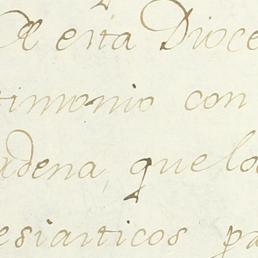 A esta Dioce
timonio con
adena, que los
esiasticos pa